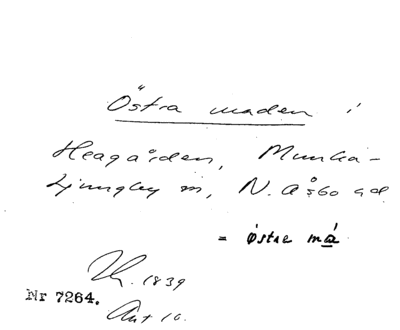 Östra maden i
Heagården, Munka-
Ljungby sn, N. Åsbo hd
= östre må
1839
Nr 7264.
Akt 10.